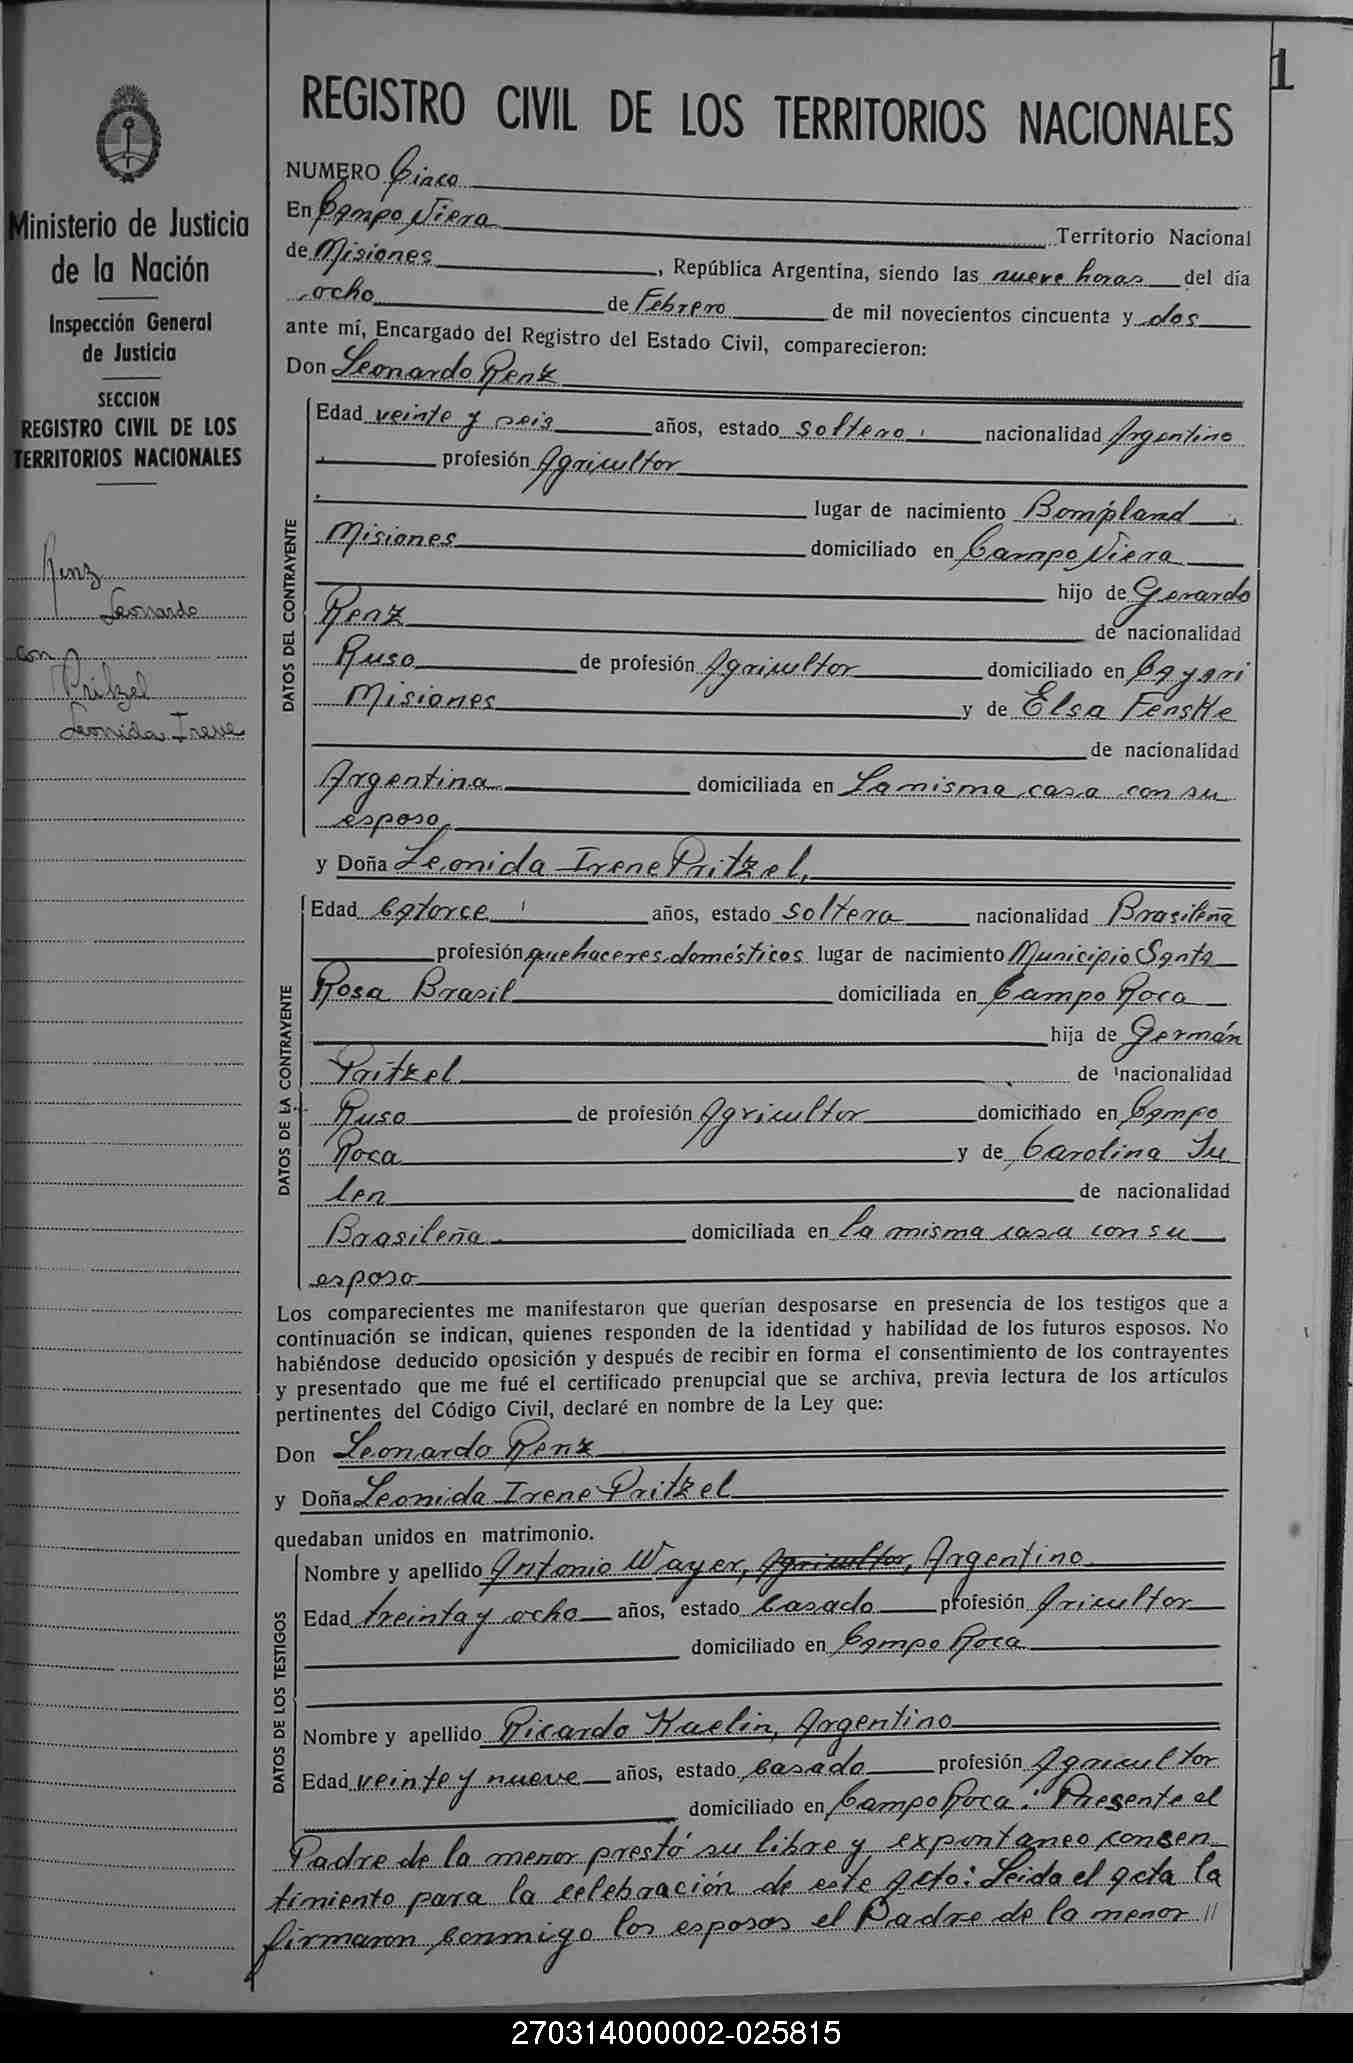 1
REGISTRO CIVIL DE LOS TERRITORIOS NACIONALES
Ministerio de Justicia
de la Nación
Inspección General
de Justicia
SECCION
REGISTRO CIVIL DE LOS
TERRITORIOS NACIONALES
Renz
Leonardo
con
Pritzel
Leonida Irene
NUMERO Cinco
En Campo Viera Territorio Nacional
de Misiones, República Argentina, siendo las nueve horas del día
ocho de Febrero de mil novecientos cincuenta y dos
ante mí, Encargado del Registro del Estado Civil, comparecieron:
Don Leonardo Renz
DATOS DEL CONTRAYENTE
Edad veinte y seis años, estado soltero nacionalidad Argentino
profesión Agricultor
lugar de nacimiento Bompland
Misiones domiciliado en Campo Viera
hijo de Gerardo
Renz de nacionalidad
Ruso de profesión Agricultor domiciliado en
Misiones y de Elsa Fenske
de nacionalidad
Argentina domiciliada en La misma casa con su
esposo,
y Doña Leonida Irene Pritzel,
DATOS DE LA CONTRAYENTE
Edad Catorce años, estado soltera nacionalidad Brasileña
profesión quehaceres domésticos lugar de nacimiento Municipio Santa
Rosa Brasil domiciliada en Campo Roca
hija de Germán
Pritzel de nacionalidad
Ruso de profesión Agricultor domiciliado en Campo
Roca y de Carolina
len de nacionalidad
Brasileña domiciliada en La misma casa con su
esposo
Los comparecientes me manifestaron que querían desposarse en presencia de los testigos que a
continuación se indican, quienes responden de la identidad y habilidad de los futuros esposos. No
habiéndose deducido oposición y después de recibir en forma el consentimiento de los contrayentes
y presentado que me fué el certificado prenupcial que se archiva, previa lectura de los artículos
pertinentes del Código Civil, declaré en nombre de la Ley que:
Don Leonardo Renz
y Doña Leonida Irene Pritzel
quedaban unidos en matrimonio.
DATOS DE LOS TESTIGOS
Nombre y apellido Antonio Wayer, Agricultor, Argentino
Edad treinta y ocho años, estado Casado profesión Aricultor
domiciliado en Campo Roca
Nombre y apellido Ricardo Kaelin, Argentino
Edad veinte y nueve años, estado Casado profesión Agricultor
domiciliado en Campo Roca: Presente el
Padre de la menor prestó su libre y expontaneo consen
timiento para la celebración de este Acto: Leida el acta la
firmaron conmigo los esposos el Padre de la menor //
270314000002-025815